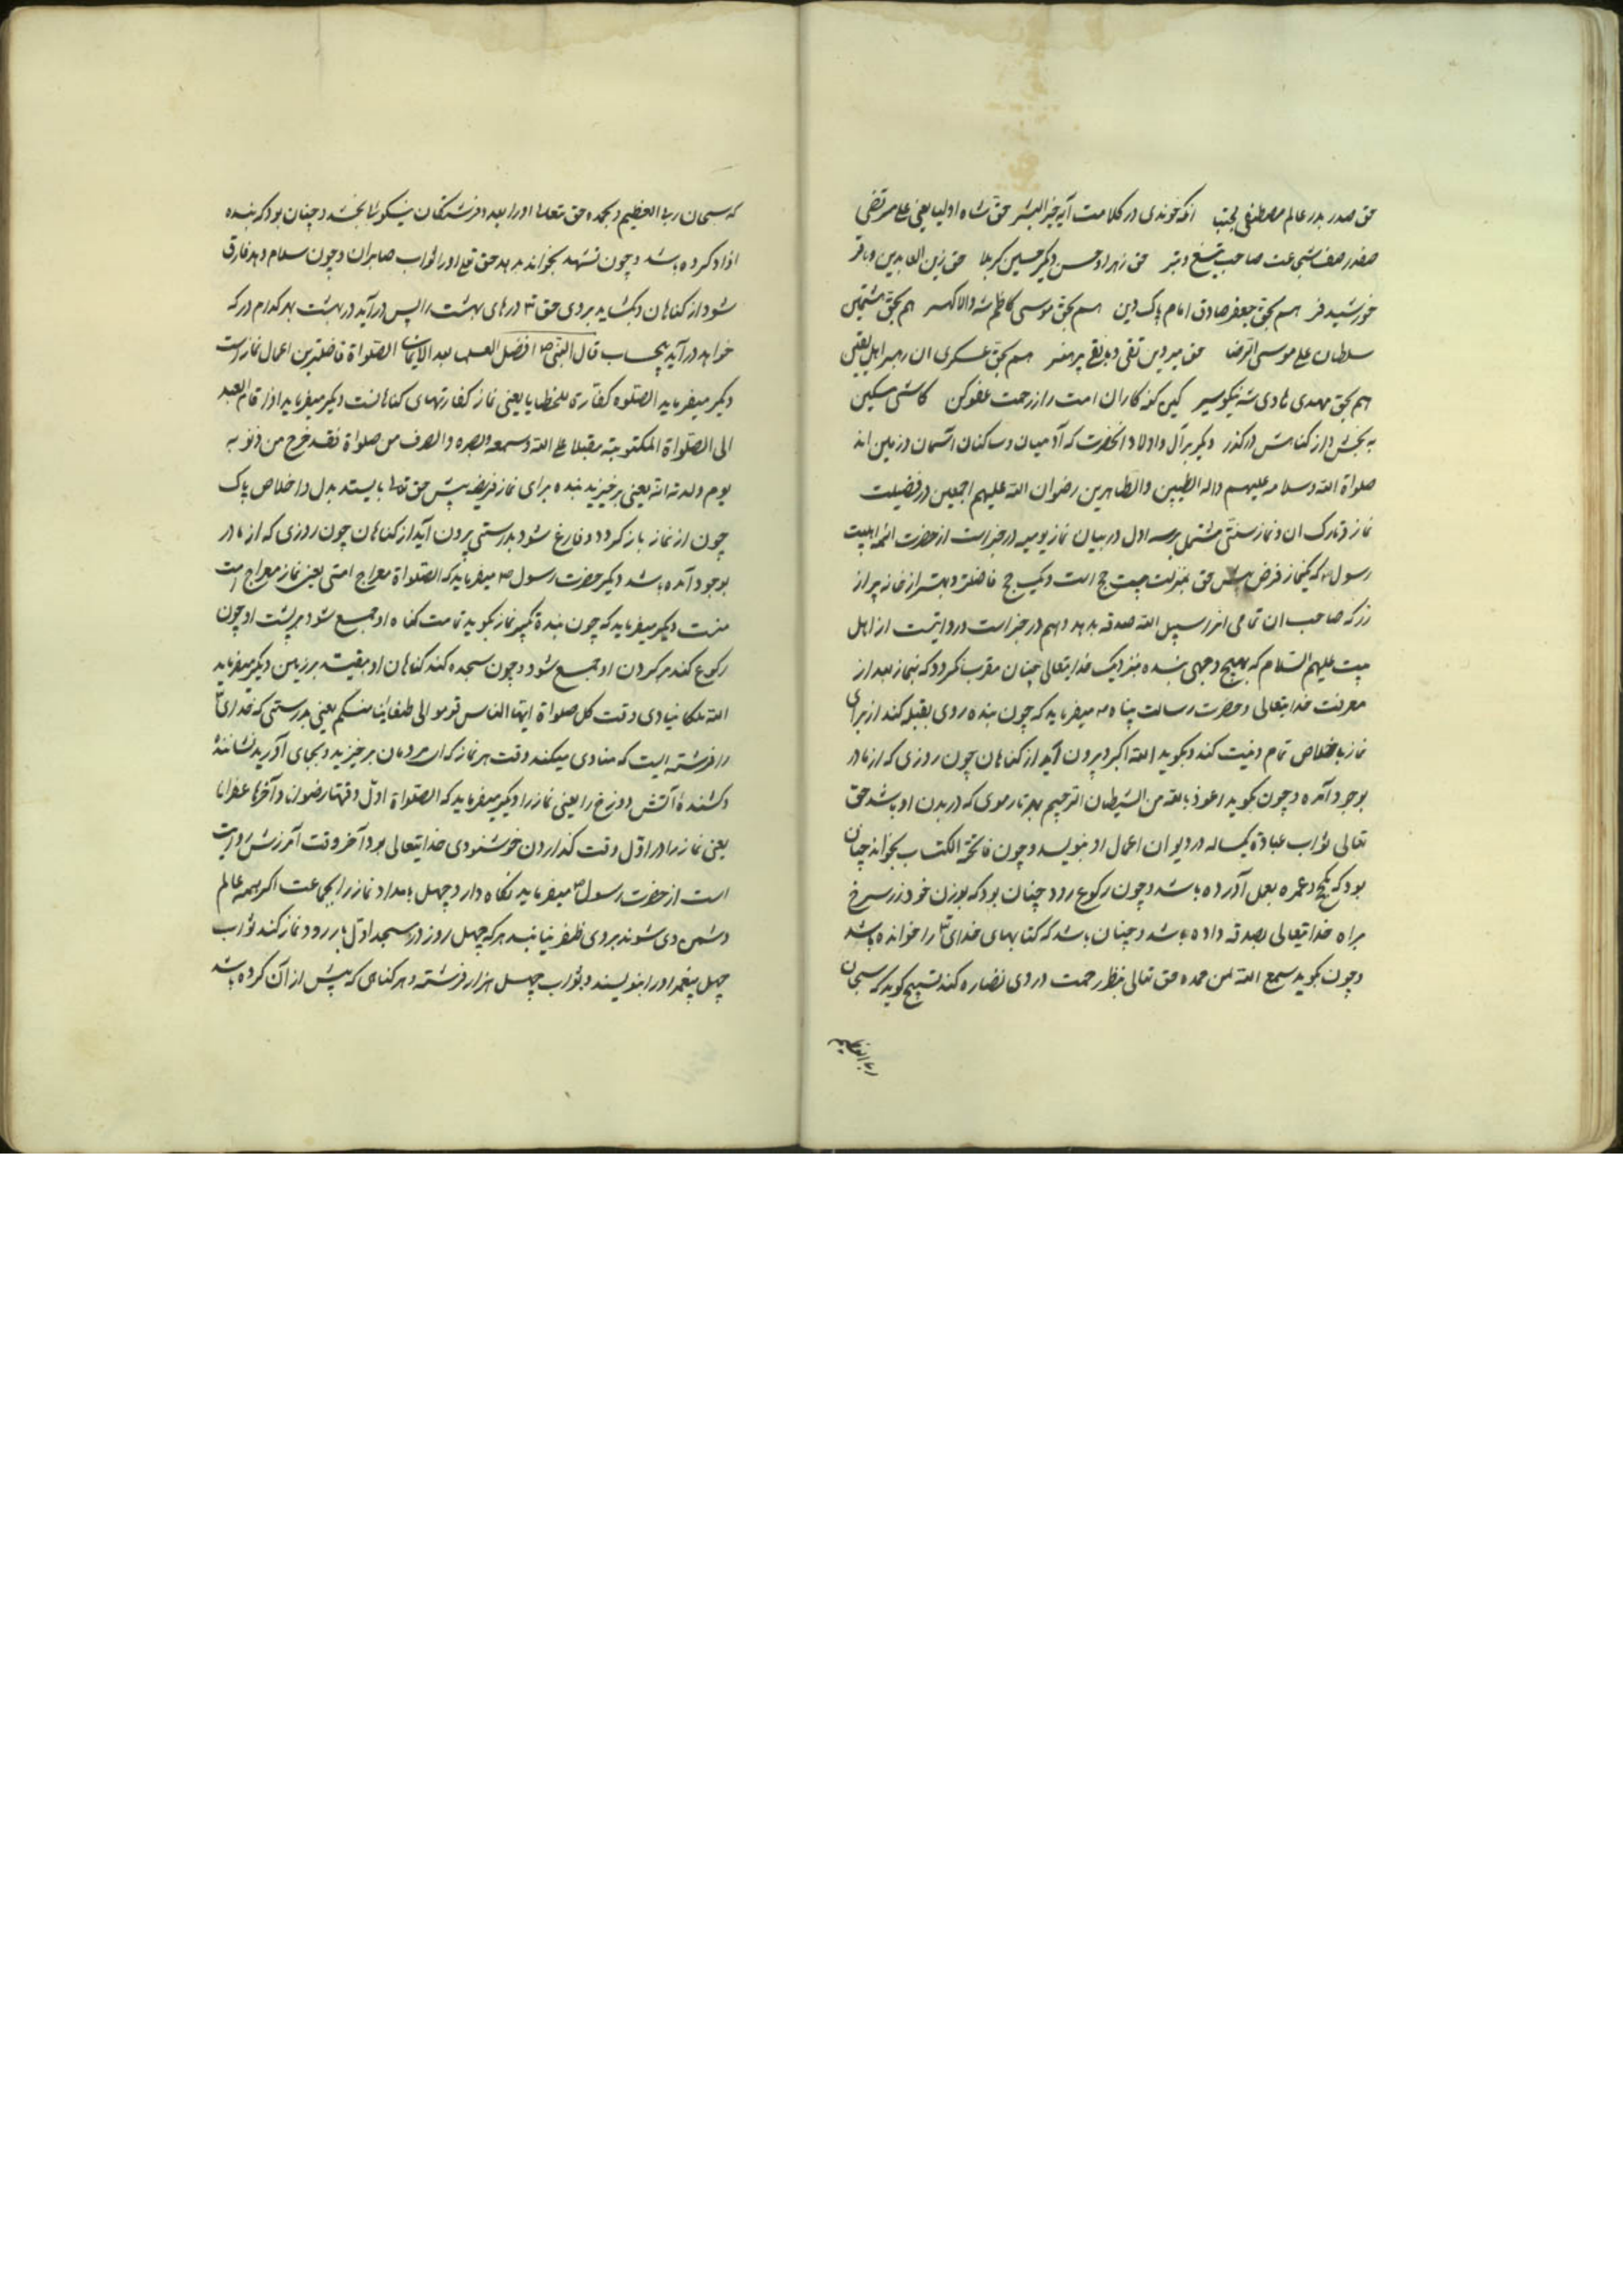 حق صدر بدر عالم مصطفی مجتبی انکه خوندی در کلامت آیه خیر البشر حق شاه اولیا یعنی علی مرتضی
صفدر صف شجاعت صاحب تیغ و تبر حق زهرا و حسن دیگر حسین کربلا حق زین العابدین و باقر
خورشید فر هم بحق جعفر صادق امام پاک دین هم بحق موسی کاظم شه والا گهر هم بحق هشتمین
سلطان علی موسی الرضا حق میر دین تقی و با نقی پر هنر هم بحق عسکری ان رهبر اهل یقین
هم بحق مهدی هادی شه نیکو سیر کین کنه کاران امت را ز رحمت عفو کن کاشی مسکین
به بخش و از کناهش در کذر دیگر بر آل و اولاد انحضرت که آدمیان و ساکنان اسمان و زمین اند
صلواة الله و سلامه علیهم و اله الطیبین و الطاهرین رضوان الله علیهم اجمعین در فضیلت
نماز و تارک ان و نماز سنتی مشتمل بر سه اول در بیان نماز یومیه در خبر است از حضرت ائمه اهلبیت
رسول که یکنماز فرض پیش حق بمنزلت بیست حج است و یک حج فاضلتر و بهتر از خانه پر از
زر که صاحب ان تمامی انرا سبیل الله صدقه بدهد و هم در خبر است و روایتست از اهل
بیت علیهم السلام که بهیچ وجهی بنده بنزدیک خدایتعالی چنان مقرب نکردد که بنماز بعد از
معرفت خدایتعالی و حضرت رسالت پناه میفرماید که چون بنده روی بقبله کند از برای
نماز باخلاص تمام و نیت کند و بکوید الله اکبر بیرون آید از کناهان چون روزی که از مادر
بوجود آمده و چون بکوید اعوذ بالله من الشیطان الرجیم بهر تار موی که در بدن او باشد حق
تعالی ثواب عبادة یکساله در دیوان اعمال او بنویسد و چون فاتحة الکتاب بخواند چنان
بود که حج و عمره بعمل آورده باشد و چون رکوع رود چنان بود که بوزن خود زر سرخ
براه خدایتعالی بصدقه داده باشد و چنان باشد که کتابهای خدای را خوانده باشد
و چون بکوید سمع الله لمن حمده حق تعالی بنظر رحمت در وی نضاره کند تسبیح کوید که سبحان
ربی العظیم
که سبحان ربی العظیم و بحمده حق تعالی اورا بعدد فرشتکان نیکوئیها بخشد و چنان بود که بنده
ازاد کرده باشد و چون تشهد بخواند بدهد حق تعالی اورا ثواب صابران و چون سلام دهد فارق
شود از کناهان و بکشاید بر وی حق درهای بهشت را پس در آید در بهشت بهر کدام در که
خواهد در آید بیحساب قال النبی افضل العمل بعد الایمان الصلواة فاضلترین اعمال نماز است
دیگر میفرماید الصلوه کفارة للخطایا یعنی نماز کفارتهای کناهانست دیگر میفرماید اذا قام العبد
الی الصلواة المکتوبة مقبلا علی الله و سمعه و بصره و انصرف من صلواة فقد خرج من ذنوبه
یوم ولدته امه یعنی برخیزید بنده برای نماز فریضه پیش حق تعالی بایستد بدل و اخلاص پاک
چون از نماز باز کردد و فارغ شود بدرستی بیرون آید از کناهان چون روزی که از مادر
بوجود آمده باشد دیگر حضرت رسول میفرماید که الصلواة معراج امتی یعنی نماز معراج امت
منست دیگر میفرماید که چون بنده تکبیر نماز بکوید تمامت کناه او جمع شود بر پشت او چون
رکوع کند بر کردن او جمع شود و چون سجده کند کناهان او بیفتد بر زمین دیگر میفرماید
الله ملکا ینادی وقت کل صلواة ایها الناس قوموا الی یعنی بدرستی که خدای
را فرشته ایست که منادی میکند وقت هر نماز که ای مردمان برخیزید و بجای آورید نشانندهٔ
و کشندهٔ آتش دوزخ را یعنی نماز را دیگر میفرماید که الصلواة اول وقتها رضوان و آخرها غفران
یعنی نماز را در اول وقت کذاردن خوشنودی خدایتعالی بود آخر وقت آمرزش روایت
است از حضرت رسول میفرماید نکاه دارد چهل بامداد نماز را بجماعت اکر همه عالم
دشمن وی شوند بر وی ظفر نیابند هر که چهل روز در مسجد اول بار رود و نماز کند ثواب
چهل پیغمبر اورا بنویسند و ثواب چهل هزار فرشته و هر کناهی که پیش از آن کرده باشد